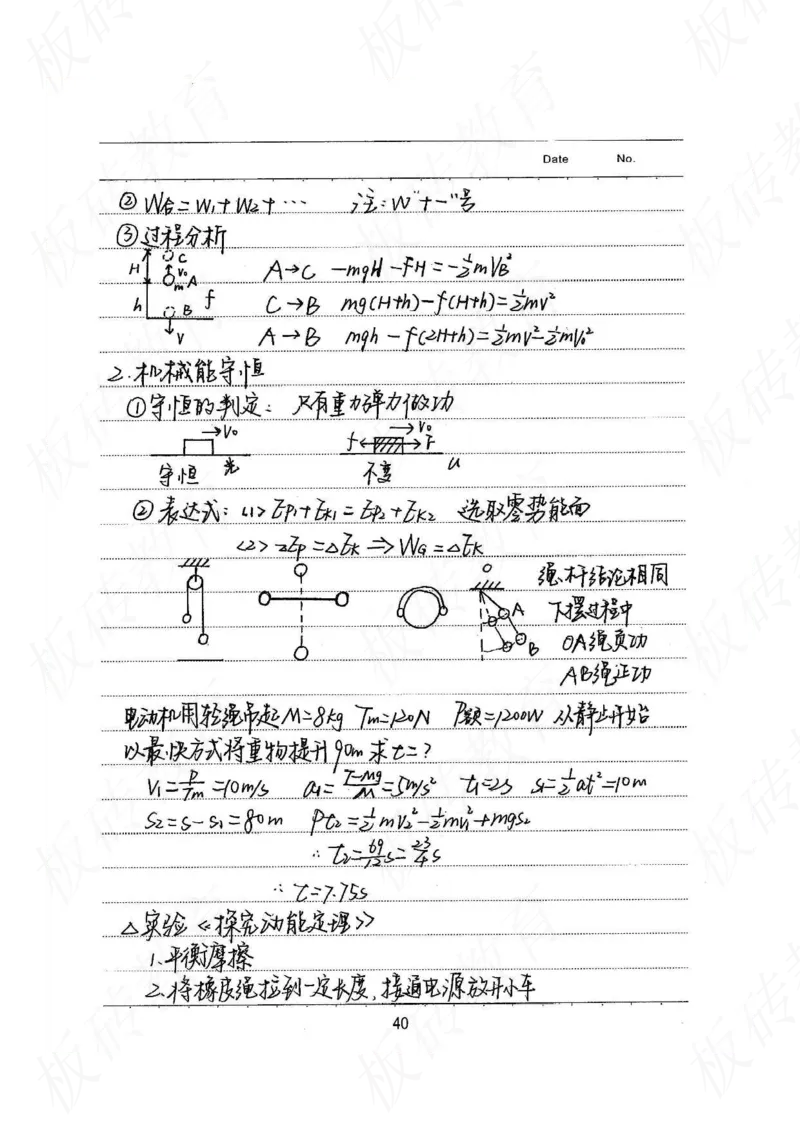 Date No.
② W合=W₁+W₂+… 注:W"+-"号
③过程分析
H h C V₀ m A B f V
A→C -mgH-fH=-½mV_B²
C→B mg(H+h)-f(H+h)=½mv²
A→B mgh-f(2H+h)=½mv²-½mV₀²
2.机械能守恒
①守恒的判定: 只有重力弹力做功
→V₀ 守恒 光
→V₀ f F 不变 u
②表达式: <1> Ep₁+Ek₁=Ep₂+Ek₂ 选取零势能面
<2> -△Ep=△Ek ⇒ W_G=△Ek
O A B
绳、杆结论相同
下摆过程中
OA绳负功
AB绳正功
电动机用轻绳吊起M=8kg Tm=120N P额=1200W 从静止开始
以最快方式将重物提升90m 求t=?
V₁=P/Tm=10m/s a₁=(T-Mg)/M=5m/s² t₁=2s s₁=½at²=10m
S₂=S-S₁=80m Pt₂=½mv₂²-½mv₁²+mgs₂
∴t₂=69/12s=23/4s
∴t=7.75s
△实验《探究动能定理》
1.平衡摩擦
2.将橡皮绳拉到一定长度,接通电源放开小车
40
板砖教育